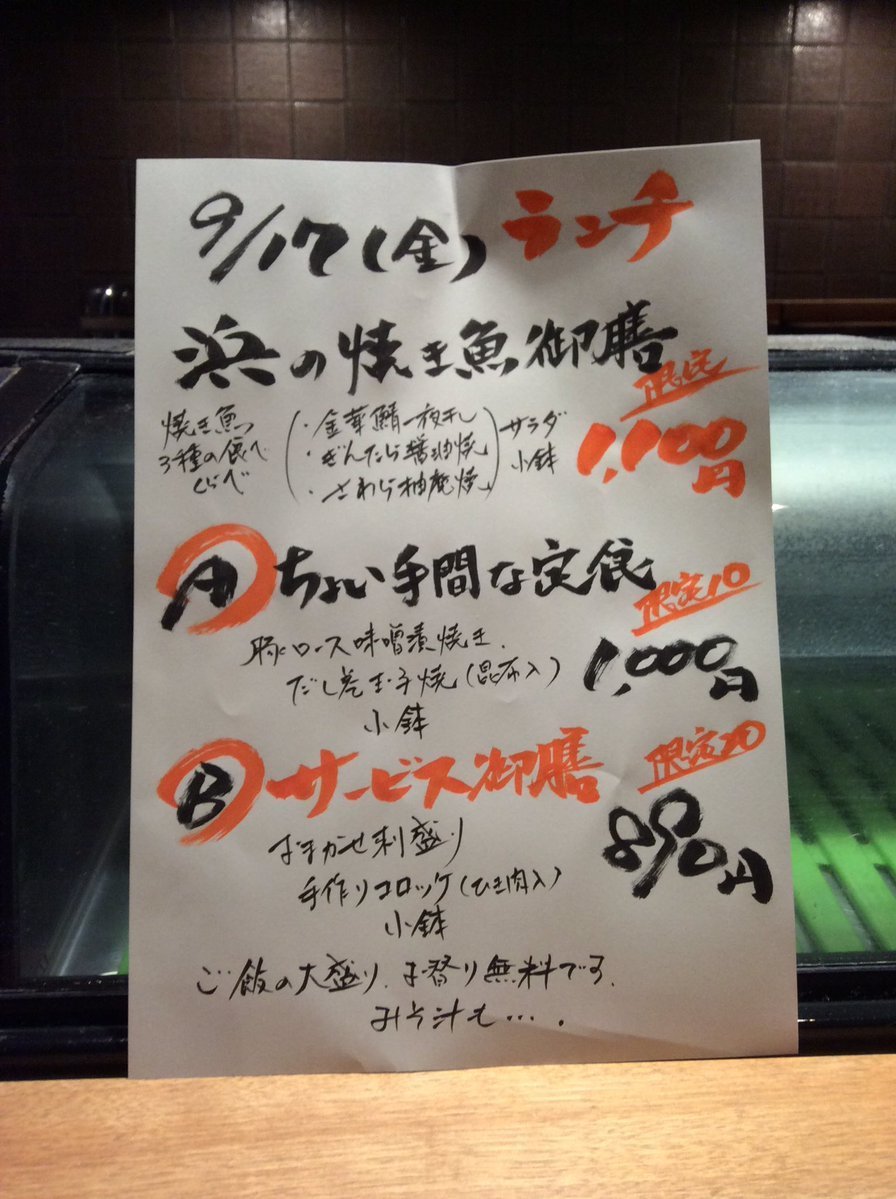 9/17(金)ランチ
浜の焼き魚御膳
限定
1,100円
焼き魚
3種の食べ
くらべ
・金華鯖一夜干し
・ぎんだら醤油焼
・さわら柚庵焼
サラダ
小鉢
A ちょい手間な定食
限定10
1,000円
豚ロース味噌漬焼き、
だし巻玉子焼(昆布入)
小鉢
B サービス御膳
限定20
890円
おまかせ刺盛り
手作りコロッケ(ひき肉入)
小鉢
ご飯の大盛り、お替り無料です、
みそ汁も….